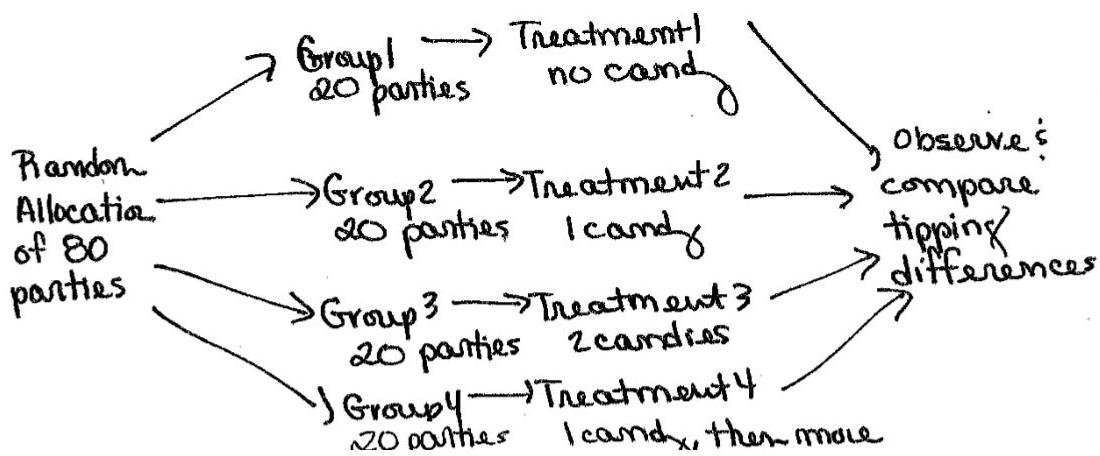 Random
Allocation
of 80
parties
Group 1
20 parties
Treatment 1
no candy
Group 2
20 parties
Treatment 2
1 candy
Group 3
20 parties
Treatment 3
2 candies
Group 4
20 parties
Treatment 4
1 candy, then more
Observe &
compare
tipping
differences